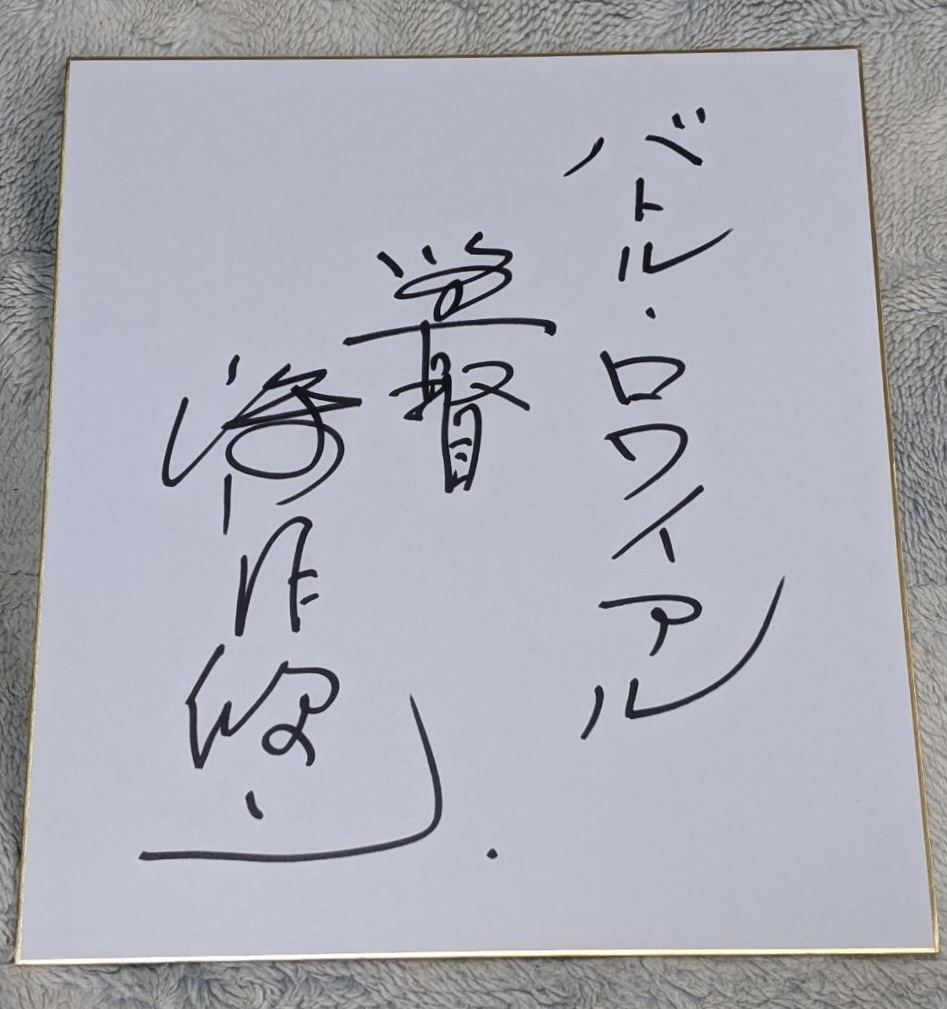 バトル・ロワイアル
監督
深作欣二